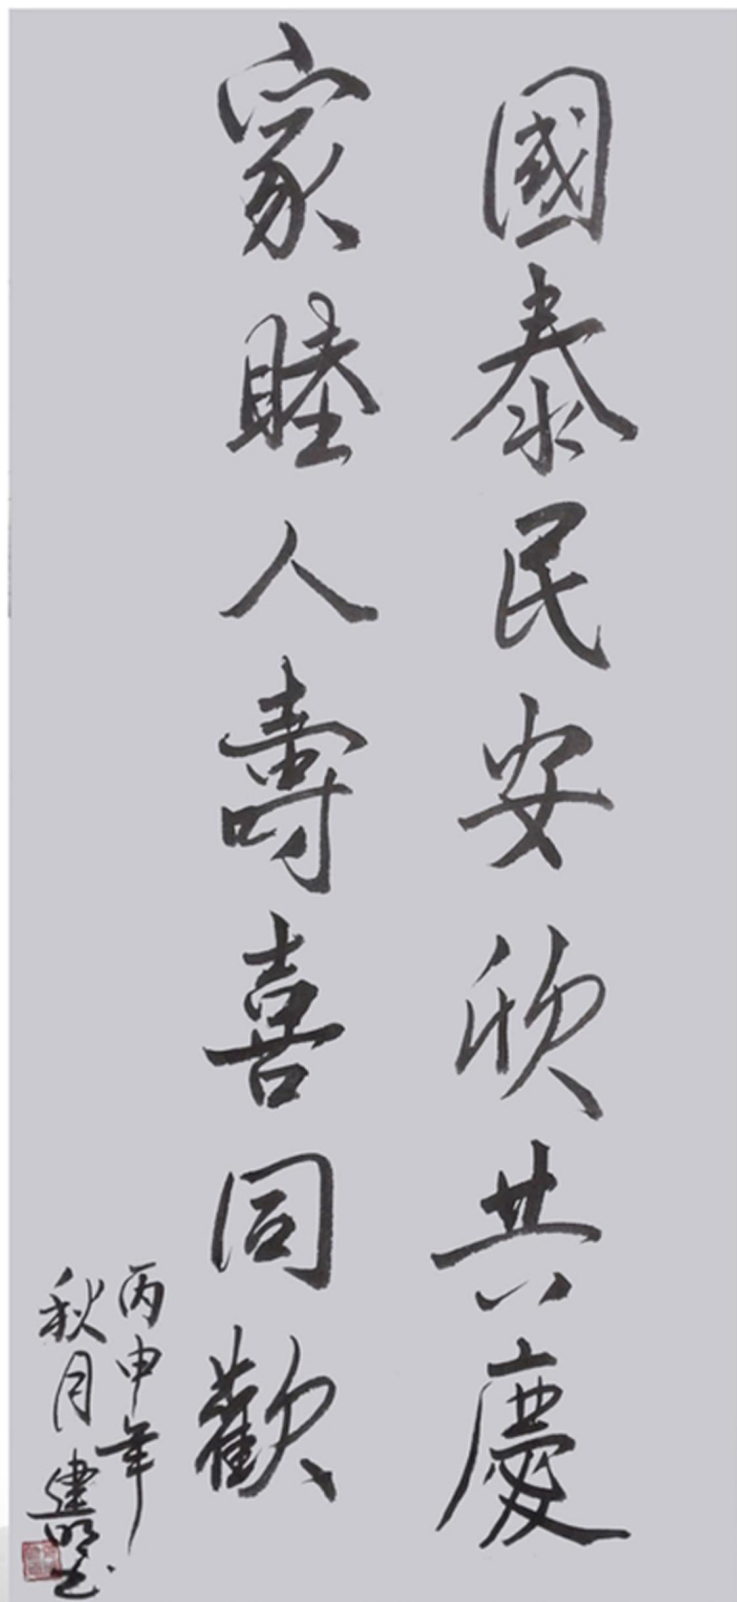 國泰民安欣共慶
家睦人壽喜同歡
丙申年
秋月建明书